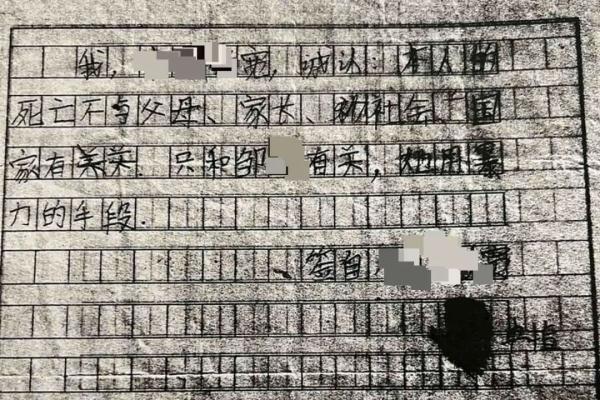 我，宽，诚认：本人的
死亡不与父母、家长、和社会、国
家有关关．只和邹有关，她用暴
力的手段．
签自